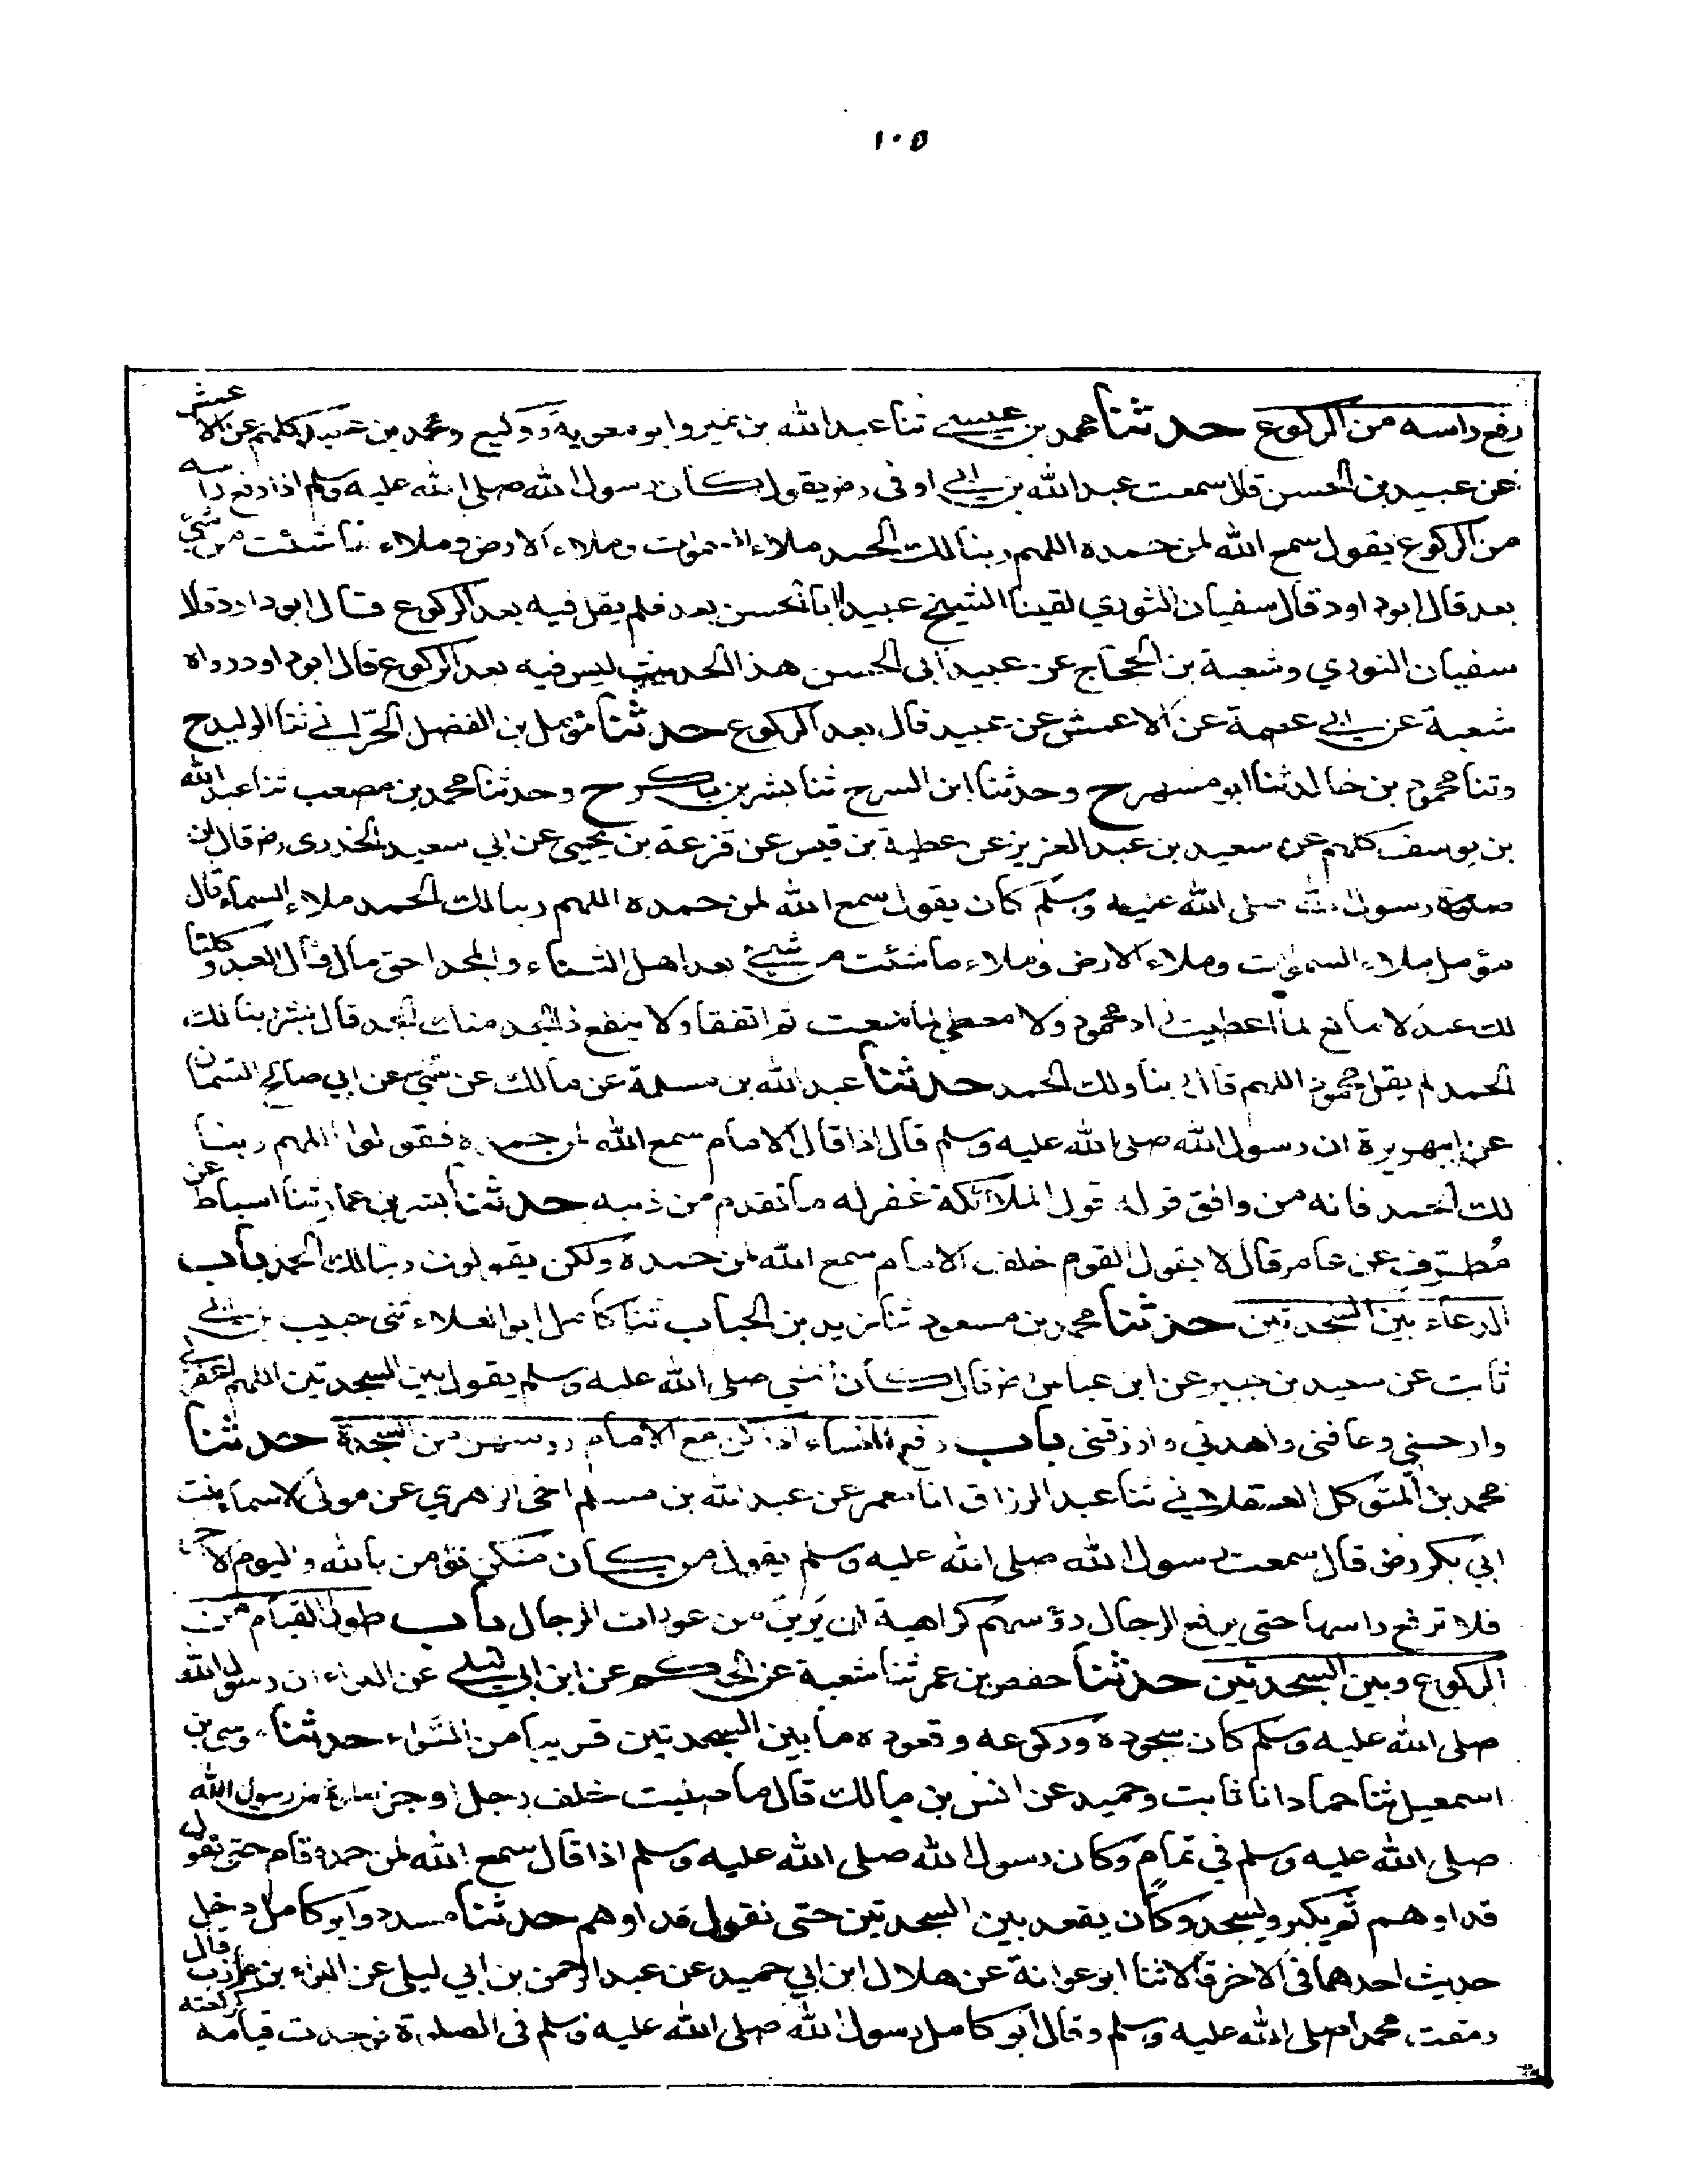 ١٠٥
رفع راسه من الركوع حدثنا محمد بن عيسى ثنا عبد الله بن نمير وابو معوية ووكيع ومحمد بن عبيد كلهم عن الاعمش
عن عبيد بن الحسن قال سمعت عبد الله بن ابي اوفى رض يقول كان رسول الله صلى الله عليه وسلم اذا رفع راسه
من الركوع يقول سمع الله لمن حمده اللهم ربنا لك الحمد ملاء السموات وملاء الارض وملاء ما شئت من شيء
بعد قال ابو داود قال سفيان الثوري لقينا الشيخ عبيدا ابا الحسن بعد فلم يقل فيه بعد الركوع قال ابو داود قلا
سفيان الثوري وشعبة بن الحجاج عن عبيد ابى الحسن هذا الحديث ليس فيه بعد الركوع قال ابو داود رواه
شعبة عن ابي عصمة عن الاعمش عن عبيد قال بعد الركوع حدثنا مؤمل بن الفضل الحرّاني ثنا الوليد ح
وثنا محمود بن خالد ثنا ابو مسهر ح وحدثنا ابن السرح ثنا بشر بن بكر ح وحدثنا محمد بن مصعب ثنا عبد الله
بن يوسف كلهم عن سعيد بن عبد العزيز عن عطية بن قيس عن قزعة بن يحيى عن ابي سعيد الخدرى رض قال ان
رسول الله صلى الله عليه وسلم كان يقول سمع الله لمن حمده اللهم ربنا لك الحمد ملاء السماء قال
مؤمل ملاء السموات وملاء الارض وملاء ما شئت من شيء بعد اهل الثناء والمجد احق ما قال العبد وكلنا
لك عبد لا مانع لما اعطيت زاد محمود ولا معطي لما منعت ثم اتفقا ولا ينفع ذا الجد منك الجد قال بشر ربنا لك
الحمد لم يقل محمود اللهم قال ربنا ولك الحمد حدثنا عبد الله بن مسلمة عن مالك عن سُمَيّ عن ابي صالح السمان
عن ابي هريرة ان رسول الله صلى الله عليه وسلم قال اذا قال الامام سمع الله لمن حمده فقولوا اللهم ربنا
لك الحمد فانه من وافق قوله قول الملائكة غفر له ما تقدم من ذنبه حدثنا بشر بن عمار ثنا اسباط عن
مُطرّف عن عامر قال لا يقول القوم خلف الامام سمع الله لمن حمده ولكن يقولون ربنا لك الحمد باب
الدعاء بين السجدتين حدثنا محمد بن مسعود ثنا زيد بن الحباب ثنا كامل ابو العلاء ثنى حبيب بن ابي
ثابت عن سعيد بن جبير عن ابن عباس رض قال كان النبي صلى الله عليه وسلم يقول بين السجدتين اللهم اغفر لي
وارحمني وعافنى واهدني وارزقنى باب رفع النساء اذا كن مع الامام روسهن من السجدة حدثنا
محمد بن المتوكل العسقلاني ثنا عبد الرزاق انا معمر عن عبد الله بن مسلم اخى الزهري عن مولى لاسماء بنت
ابي بكر رض قال سمعت رسول الله صلى الله عليه وسلم يقول من كان منكن تؤمن بالله واليوم الاخر
فلا ترفع راسها حتى يرفع الرجال رؤسهم كراهية ان يَرَين من عورات الرجال باب طول القيام من
الركوع وبين السجدتين حدثنا حفص بن عمر ثنا شعبة عن الحكم عن ابن ابي ليلى عن البراء ان رسول الله
صلى الله عليه وسلم كان سجوده وركوعه وقعوده ما بين السجدتين قريبا من السَّواء حدثنا موسى بن
اسمعيل ثنا حماد انا ثابت وحميد عن انس بن مالك قال ما صليت خلف رجل اوجز صلوة من رسول الله
صلى الله عليه وسلم في تمامٍ وكان رسول الله صلى الله عليه وسلم اذا قال سمع الله لمن حمده قام حتى نقول
قد اوهم ثم يكبر ويسجد وكان يقعد بين السجدتين حتى نقول قد اوهم حدثنا مسدد وابو كامل دخل
حديث احدهما فى الاخر قالا ثنا ابو عوانة عن هلال ابن ابي حميد عن عبد الرحمن بن ابي ليلى عن البراء بن عازب قال
رمقت محمدا صلى الله عليه وسلم وقال ابو كامل رسول الله صلى الله عليه وسلم فى الصلوة فوجدت قيامه كركعته